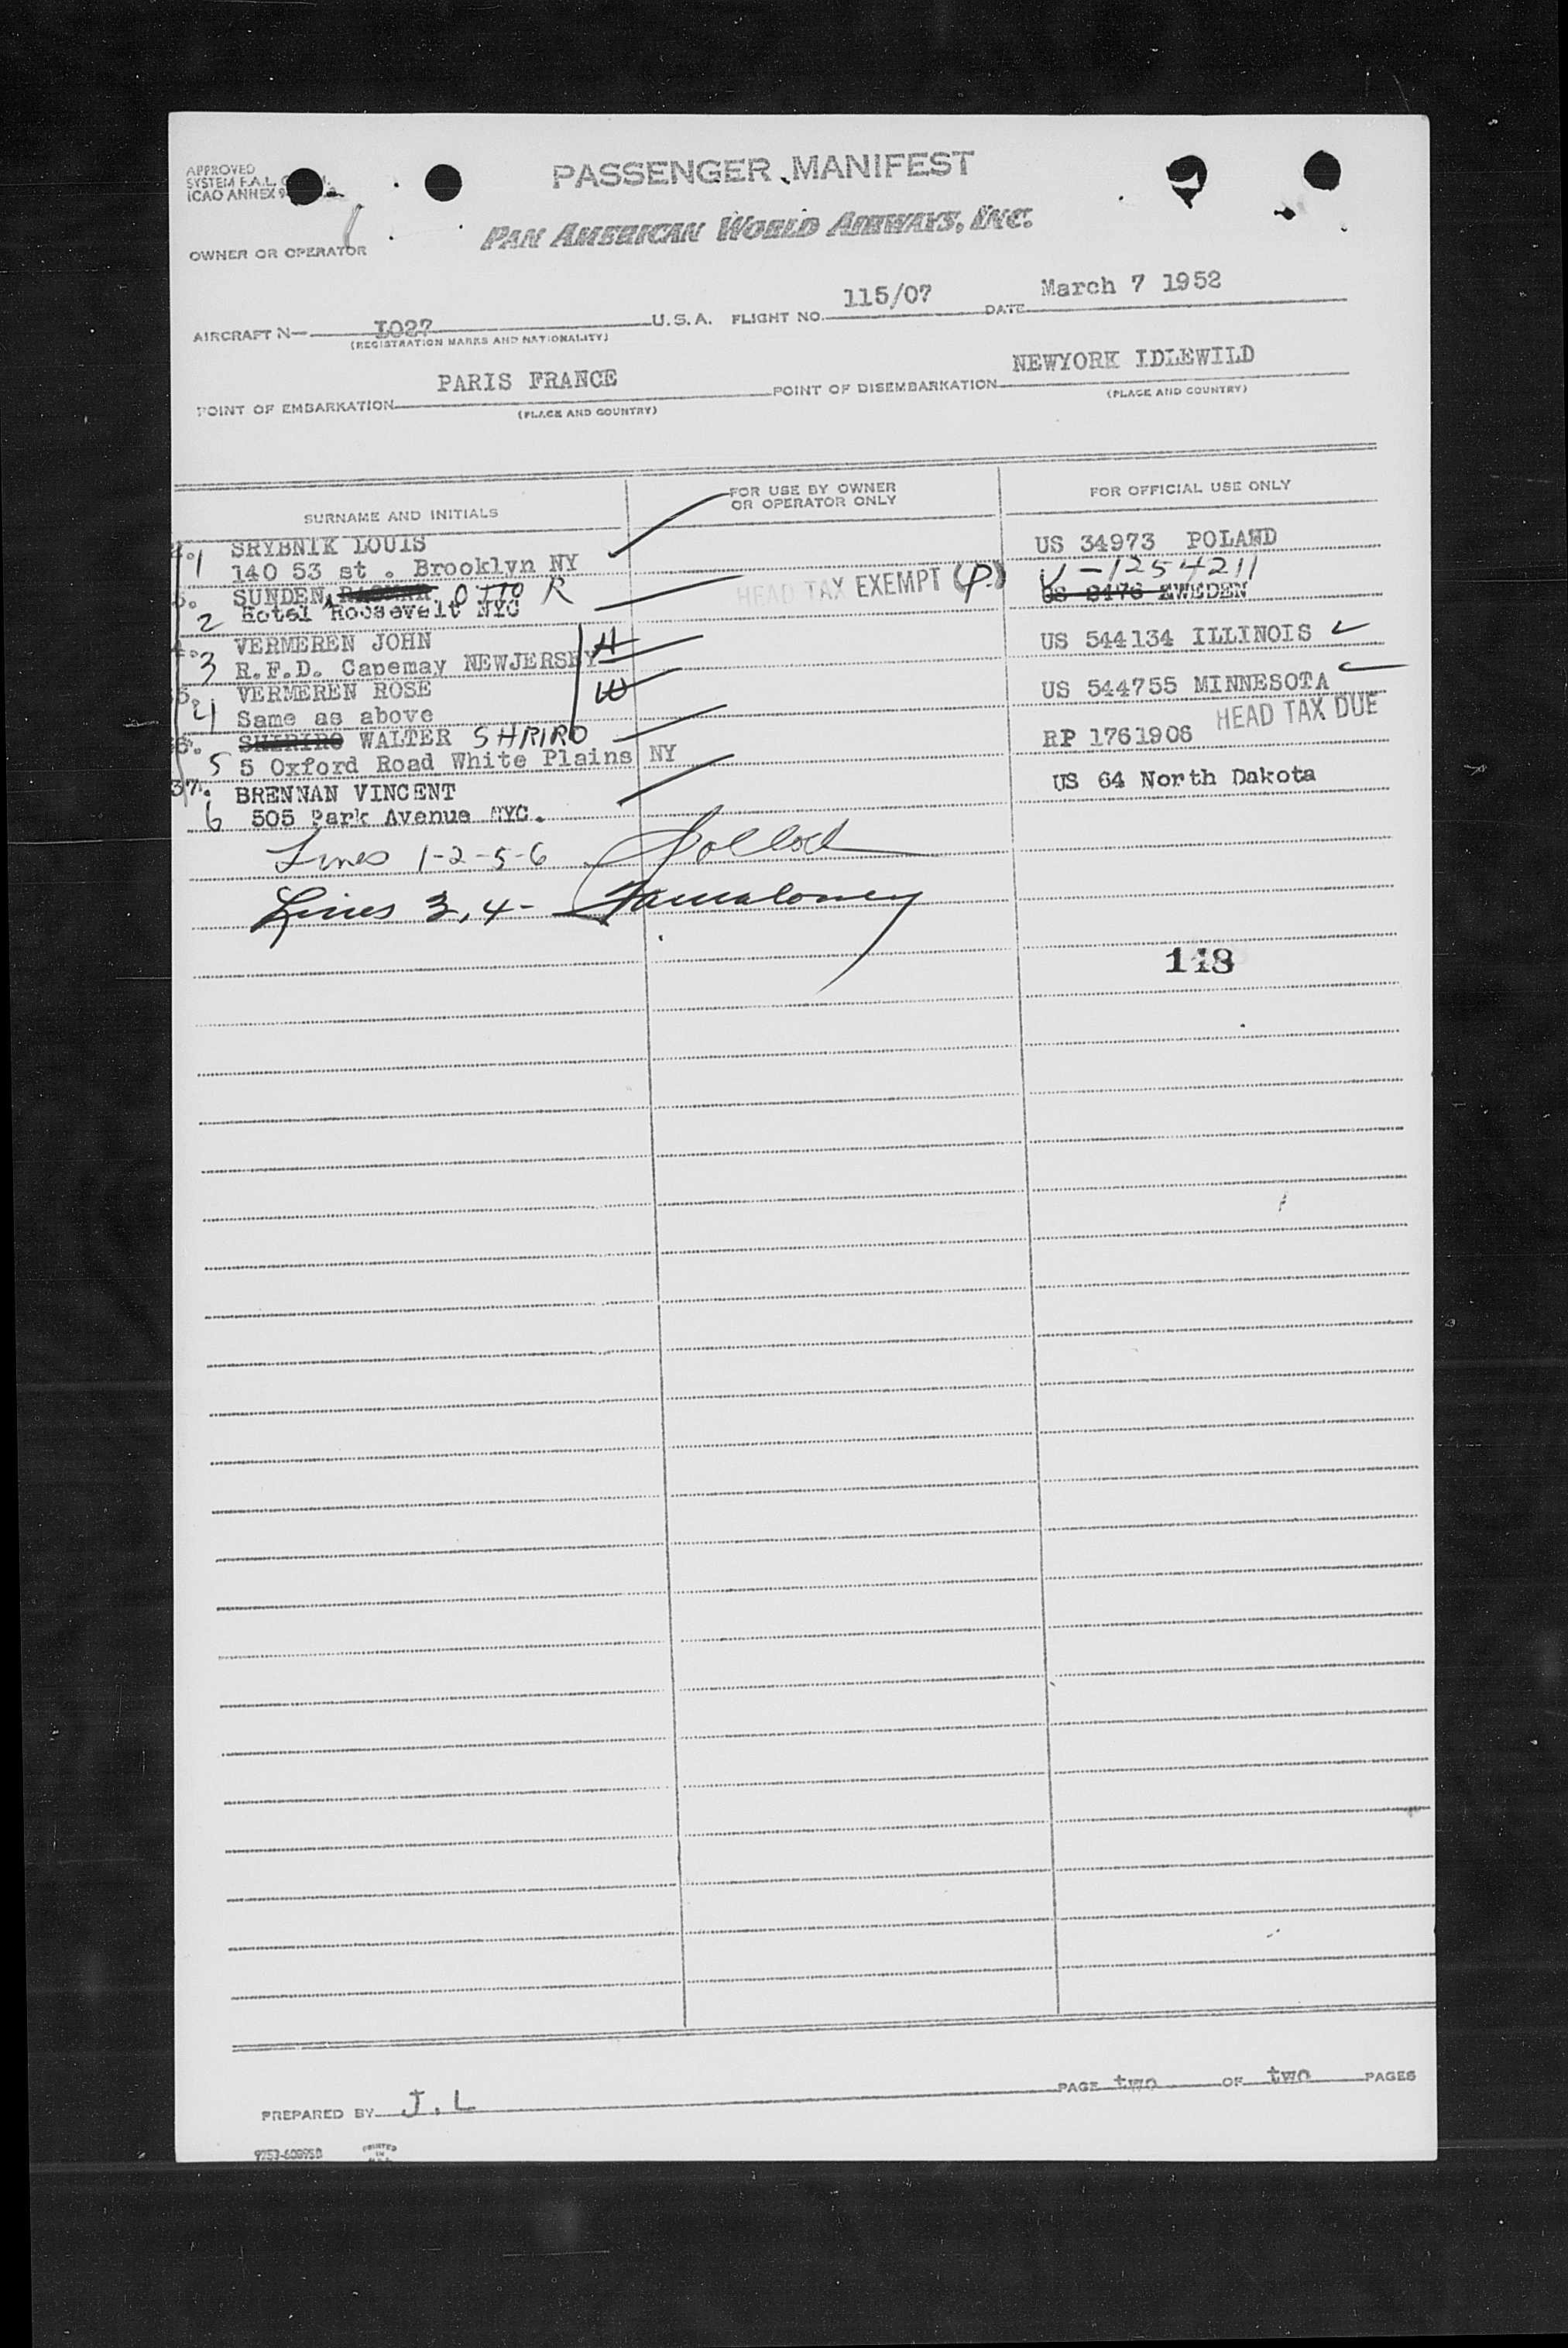 APPROVED
SYSTEM F.A.L.
ICAO ANNEX 9
PASSENGER MANIFEST
PAN AMERICAN WORLD AIRWAYS, INC.
OWNER OR OPERATOR
AIRCRAFT N— 1027 U.S.A. FLIGHT NO. 115/07 DATE March 7 1952
(REGISTRATION MARKS AND NATIONALITY)
POINT OF EMBARKATION PARIS FRANCE POINT OF DISEMBARKATION NEWYORK IDLEWILD
(PLACE AND COUNTRY) (PLACE AND COUNTRY)
SURNAME AND INITIALS FOR USE BY OWNER OR OPERATOR ONLY FOR OFFICIAL USE ONLY
1 SRYBNIK LOUIS US 34973 POLAND
140 53 st . Brooklyn NY V-1254211
SUNDEN, RAGNAR OTTO R HEAD TAX EXEMPT (P) US 8476 SWEDEN
2 Hotel Roosevelt NYC
VERMEREN JOHN H US 544134 ILLINOIS
3 R.F.D. Capemay NEWJERSEY
VERMEREN ROSE W US 544755 MINNESOTA
4 Same as above
SHERIRO WALTER SHRIRO RP 1761906 HEAD TAX DUE
5 5 Oxford Road White Plains NY
37. BRENNAN VINCENT US 64 North Dakota
6 505 Park Avenue NYC.
Lines 1-2-5-6 Pollock
Lines 3, 4-
118
PREPARED BY J.L PAGE two OF two PAGES
PRINTED
IN